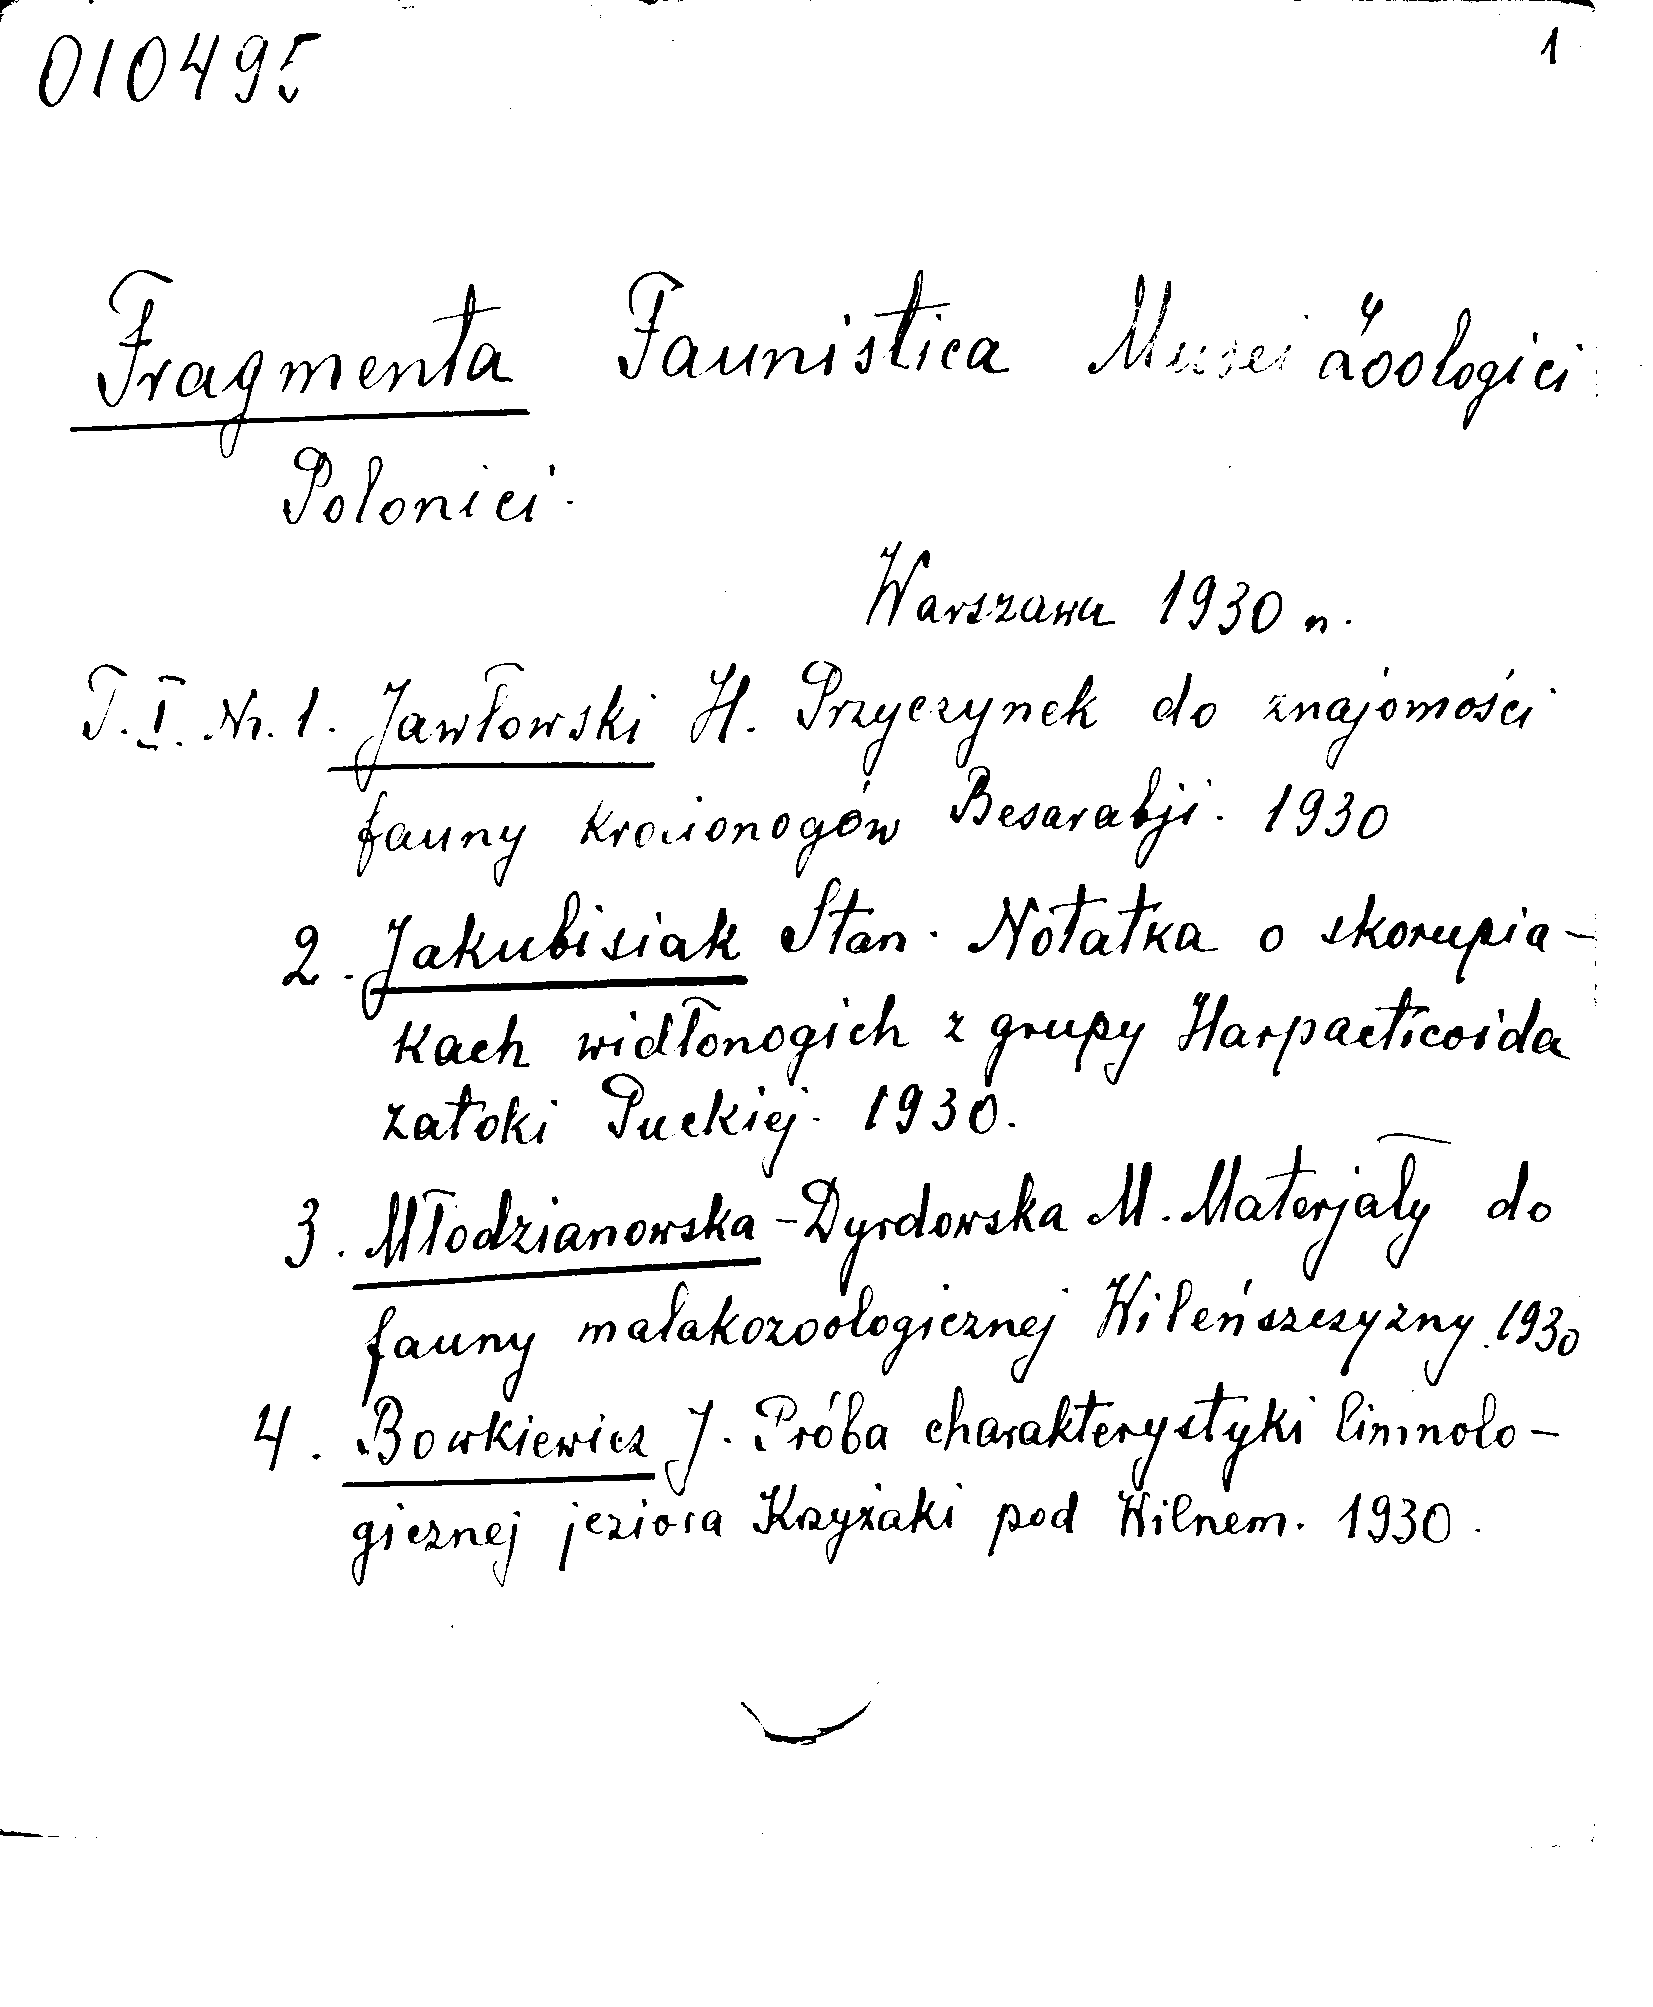 010495
1
Fragmenta Faunistica Musei Zoologici
Polonici.
Warszawa 1930 r.
T. I. Nr. 1. Jawłowski H. Przyczynek do znajomości
fauny krocionogów Besarabji. 1930
2. Jakubisiak Stan. Notatka o skorupia-
kach widłonogich z grupy Harpacticoida
zatoki Puckiej. 1930.
3. Młodzianowska-Dyrdowska M. Materjały do
fauny malakozoologicznej Wileńszczyzny. 1930
4. Bowkiewicz J. Próba charakterystyki limnolo-
gicznej jeziora Krzyżaki pod Wilnem. 1930.